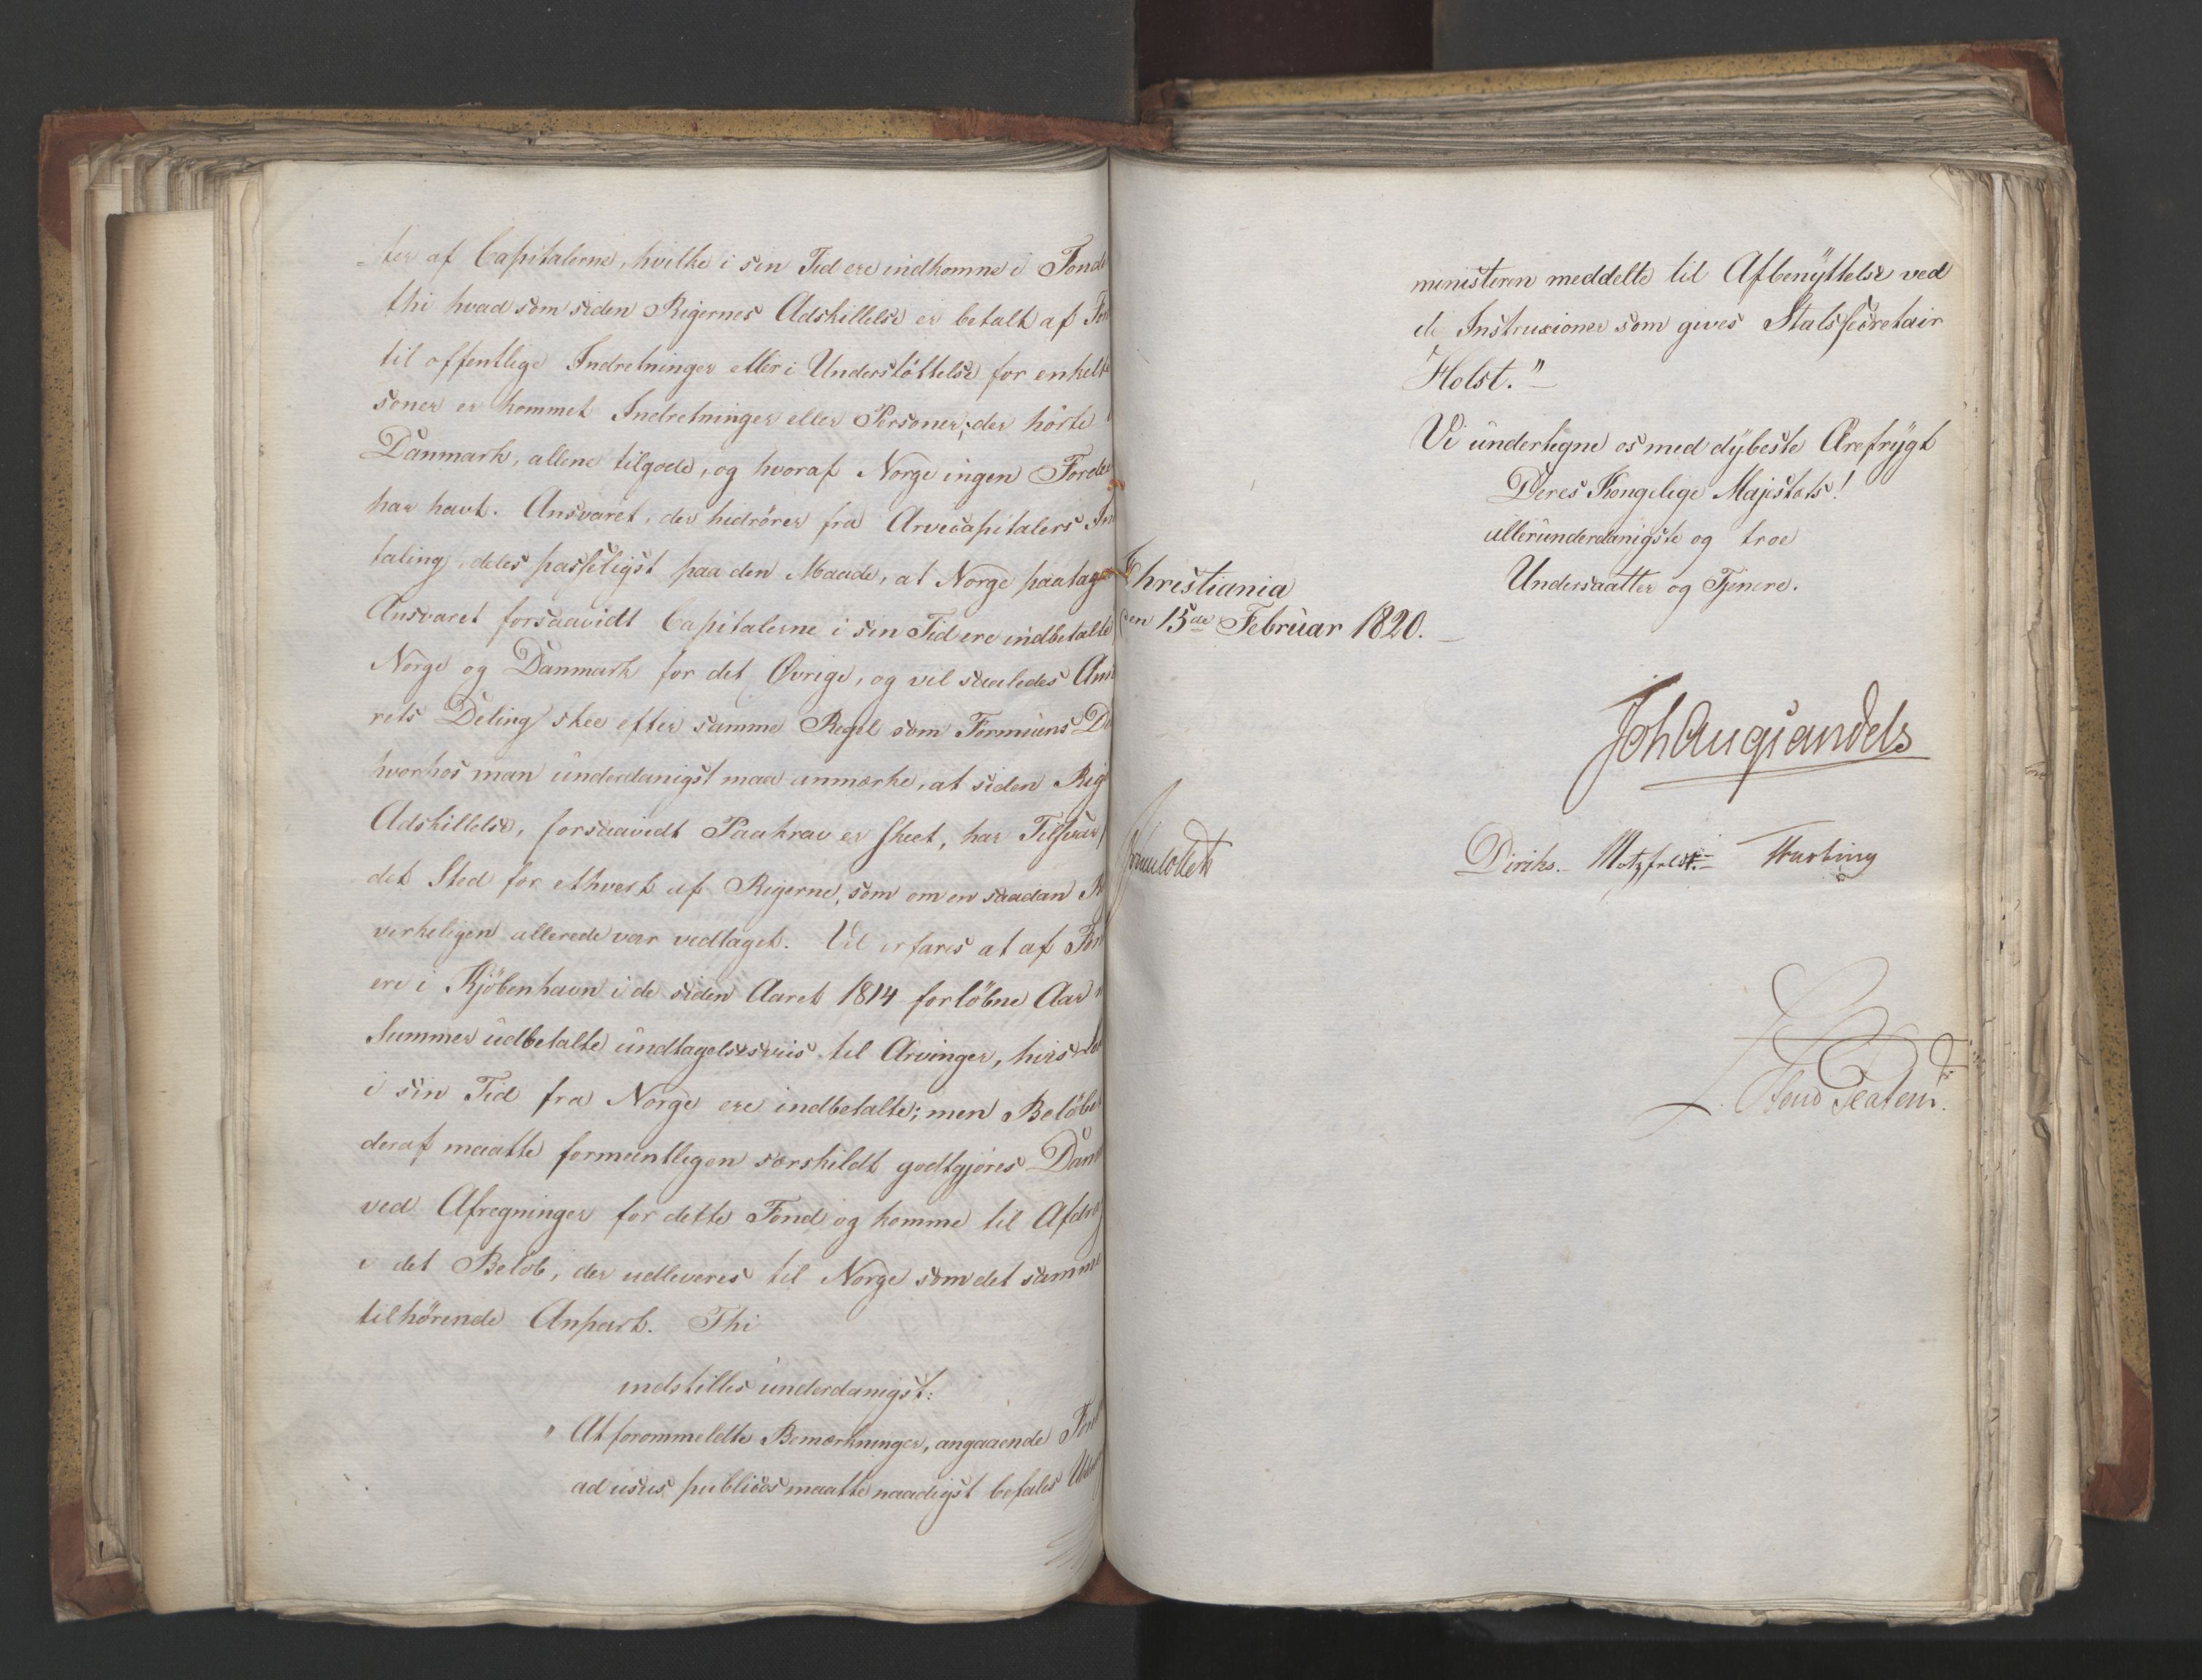 ter af Capitalerne, hvilke i sin Tid ere indkomne i Fonde
thi hvad som siden Rigernes Adskillelse er betalt af
til offentlige Indretninger eller i Understöttelse for enkelte
soner er kommet Indretninger eller Personer, der hörte
Danmark, allene tilgode, og hvoraf Norge ingen Fordel
har havt. Ansvaret, der hidrörer fra Arvecapitalers
taling, deles passeligst paa den Maade, at Norge paatager
Ansvaret forsaavidt Capitalerne i sin Tid ere indbetalte
Norge og Danmark for det Øvrige, og vil saaledes
rets Deling skee efter samme Regel som Formuens
hvorhos man underdanigst maa anmærke, at siden Rig
Adskillelse, forsaavidt Paakrav er skeet, har Tilsvar
det Sted for ethvert af Rigerne, som om en saadan
verkeligen allerede var vedtaget. Vel erfares at af
ere i Kjöbenhavn i de siden Aaret 1814 forlöbne Aar
Summer udbetalte undtagelsesviis til Arvinger, hvis
i sin Tid fra Norge ere indbetalte; men Belöbet
deraf maatte formeentligen særskildt godtgjöres Dan
ved Afregninger for dette Fond og komme til Afdrag
i det Belöb, der udleveres til Norge som det samme
tilhörende Anpart. Thi
indstilles underdanigst:
" At forommeldte Bemærkninger, angaaende
ad usus publicos maatte naadigst befales
ministeren meddelte til Afbenyttelse ved
de Instruxioner som gives Statssecretair
Holst."
Vi undertegne os med dybeste Ærefrygt
Deres Kongelige Majestæts!
allerunderdanigste og troe
Undersaatter og Tjenere.
Christiania
den 15de Februar 1820.
Joh Aug Sandels
Sommerfelt
Diriks. Motzfeldt. Krebting